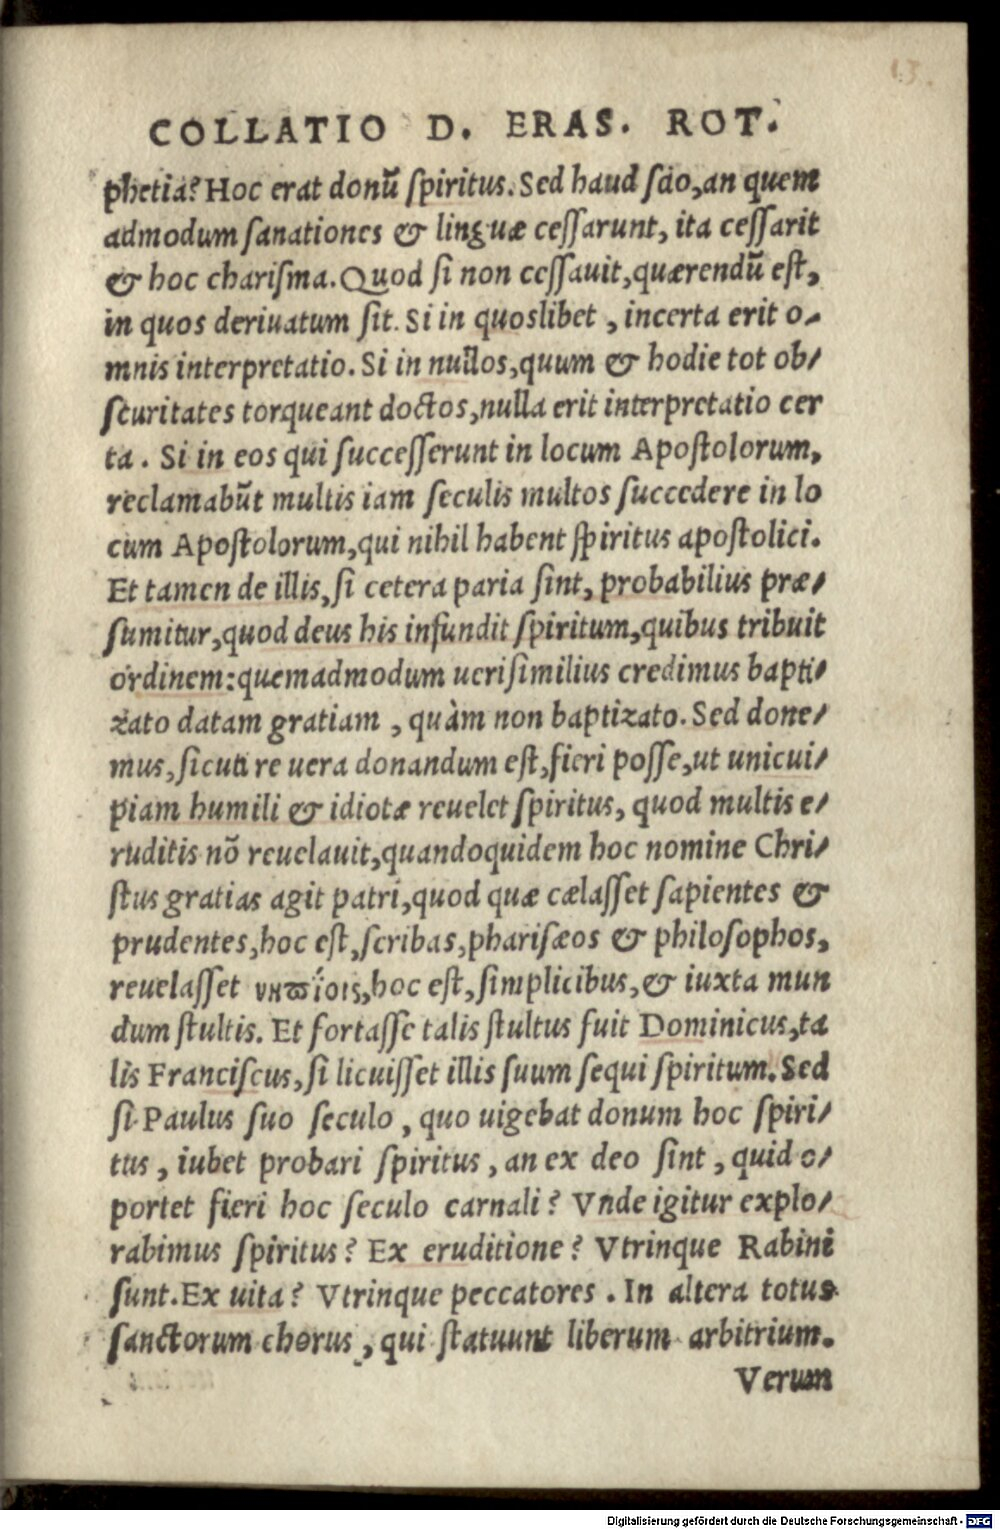 13.
COLLATIO D. ERAS. ROT.
phetia? Hoc erat donū spiritus. Sed haud scio, an quem
admodum sanationes & linguæ cessarunt, ita cessarit
& hoc charisma. Quod si non cessauit, quærendū est,
in quos deriuatum sit. Si in quoslibet, incerta erit o-
mnis interpretatio. Si in nullos, quum & hodie tot ob/
scuritates torqueant doctos, nulla erit interpretatio cer
ta. Si in eos qui successerunt in locum Apostolorum,
reclamabūt multis iam seculis multos succedere in lo
cum Apostolorum, qui nihil habent spiritus apostolici.
Et tamen de illis, si cetera paria sint, probabilius præ/
sumitur, quod deus his infundit spiritum, quibus tribuit
ordinem: quemadmodum uerisimilius credimus bapti/
zato datam gratiam, quàm non baptizato. Sed done/
mus, sicuti re uera donandum est, fieri posse, ut unicui/
piam humili & idiotæ reuelet spiritus, quod multis e/
ruditis nō reuelauit, quandoquidem hoc nomine Chri/
stus gratias agit patri, quod quæ cælasset sapientes &
prudentes, hoc est, scribas, pharisæos & philosophos,
reuelasset νηπίοις, hoc est, simplicibus, & iuxta mun
dum stultis. Et fortasse talis stultus fuit Dominicus, ta
lis Franciscus, si licuisset illis suum sequi spiritum. Sed
si Paulus suo seculo, quo uigebat donum hoc spiri/
tus, iubet probari spiritus, an ex deo sint, quid o/
portet fieri hoc seculo carnali? Vnde igitur explo/
rabimus spiritus? Ex eruditione? Vtrinque Rabini
sunt. Ex uita? Vtrinque peccatores. In altera totus
sanctorum chorus, qui statuunt liberum arbitrium.
Verum
Digitalisierung gefördert durch die Deutsche Forschungsgemeinschaft - DFG